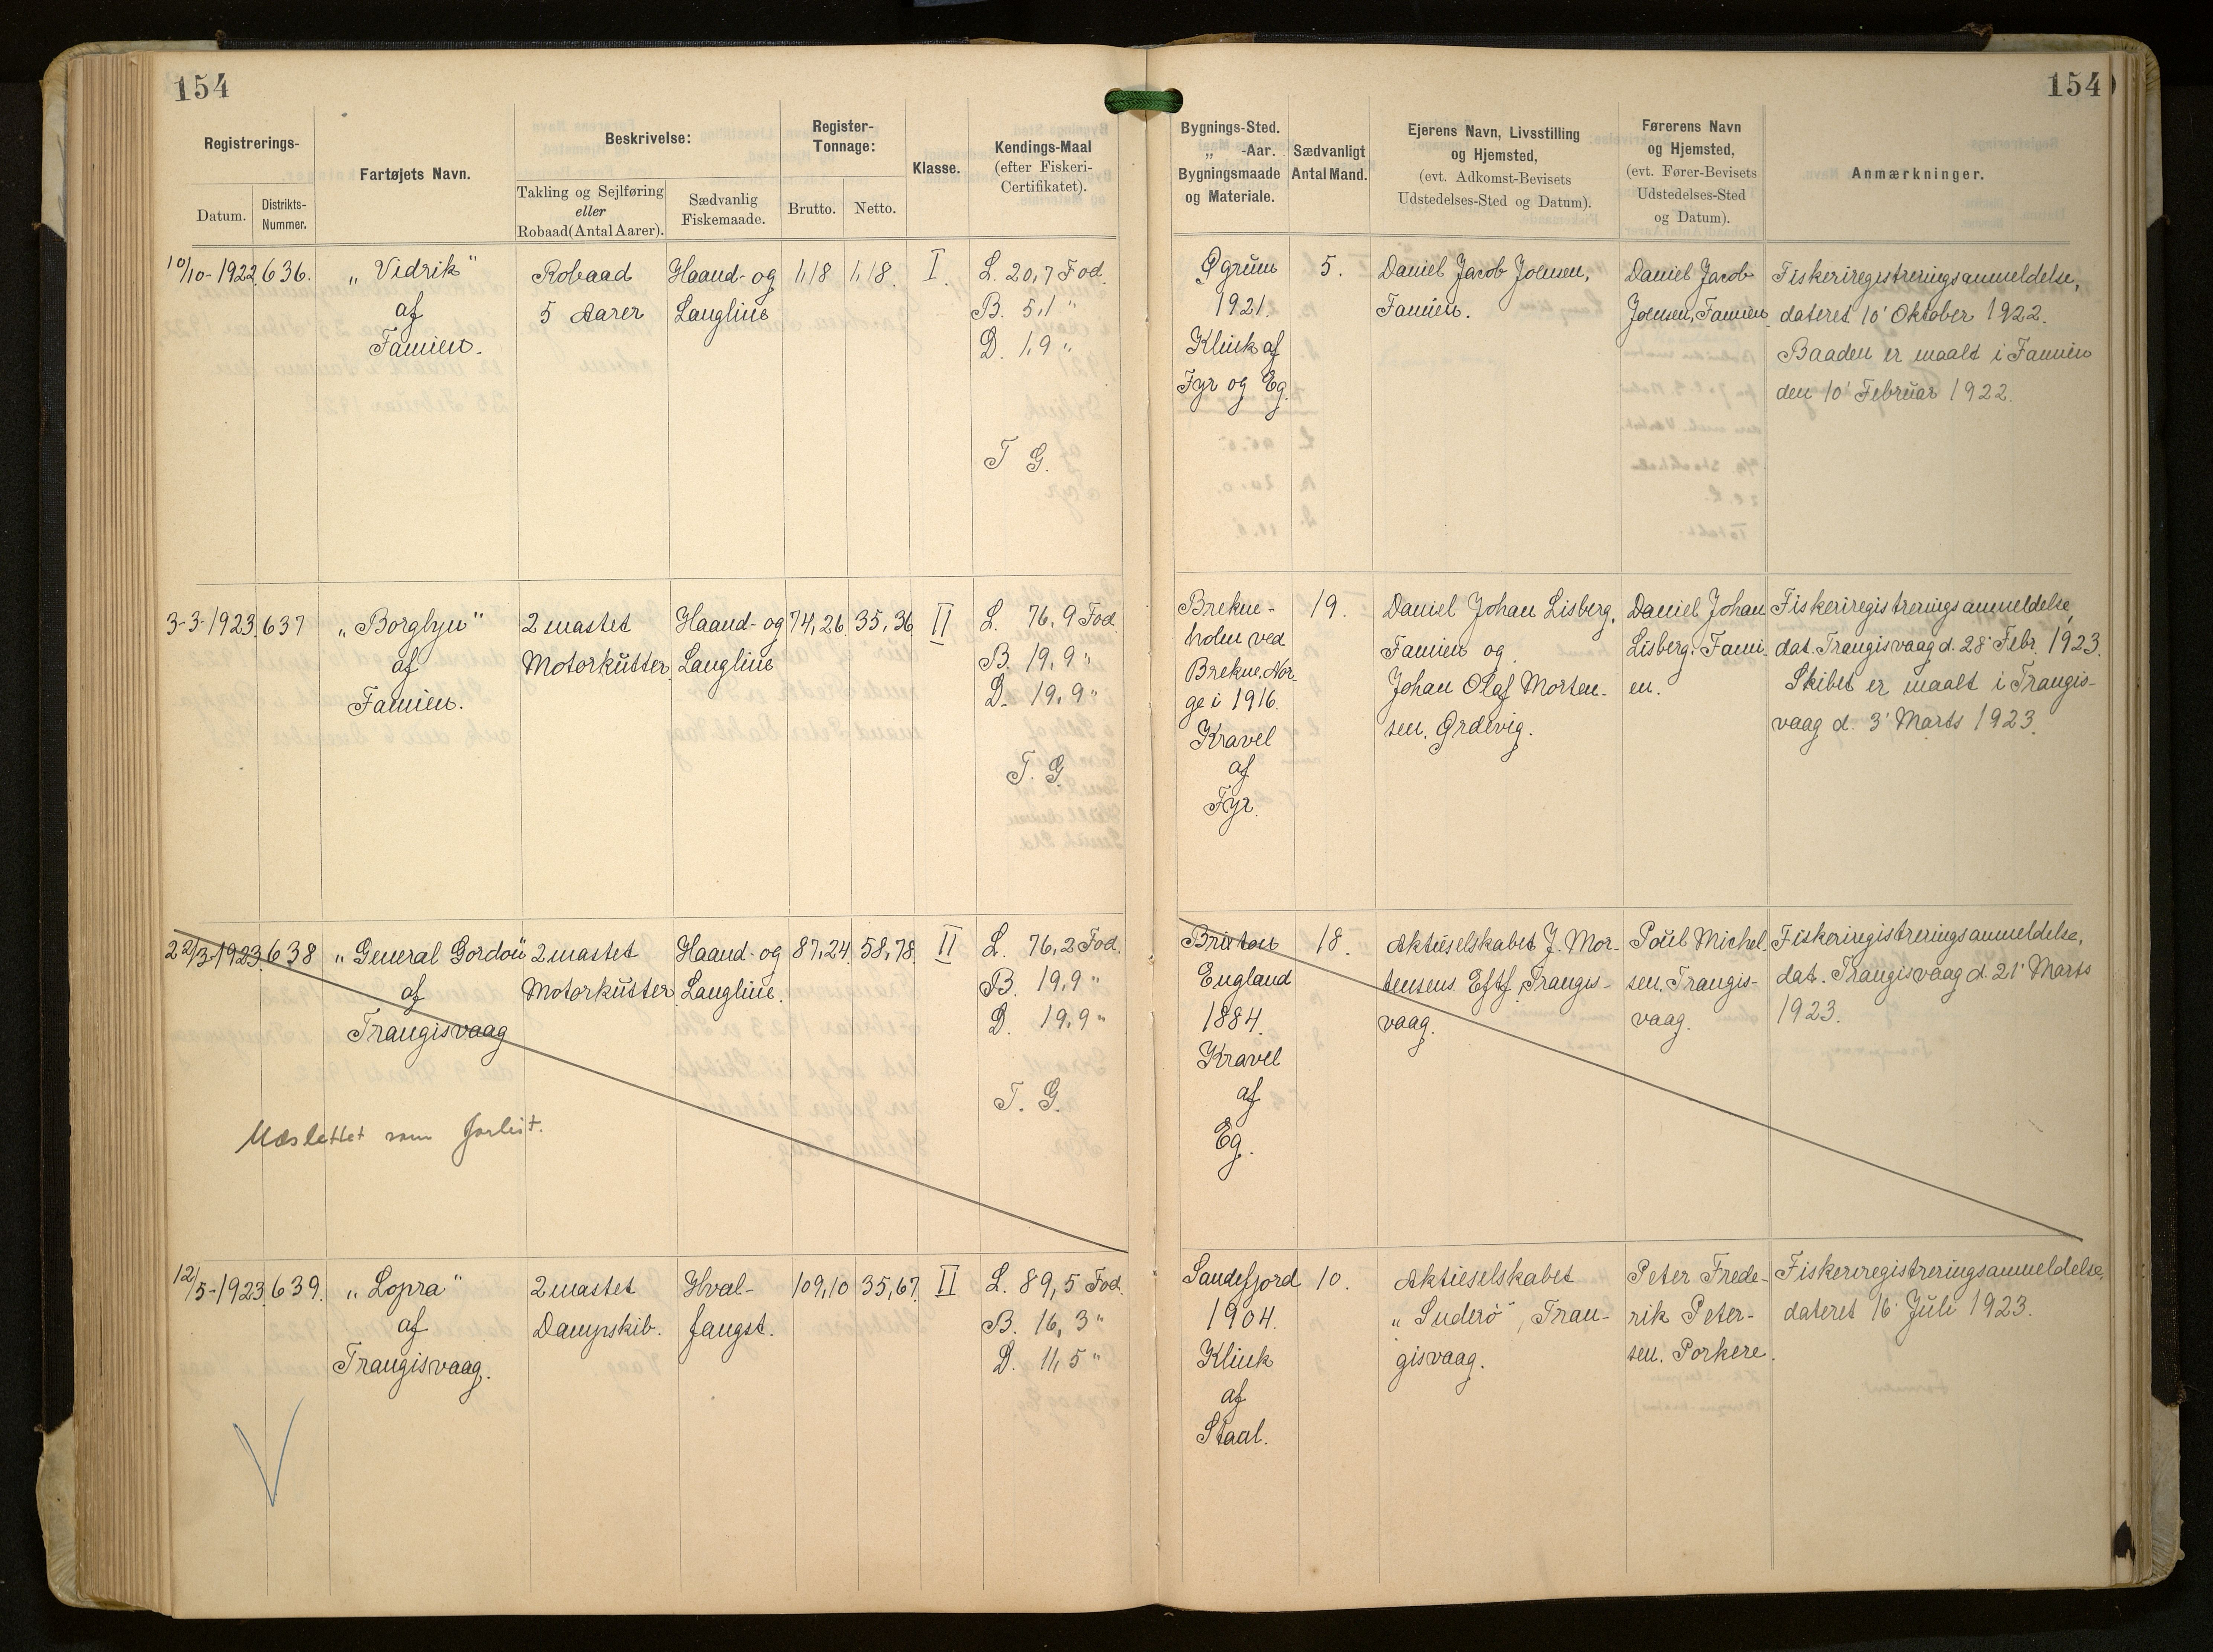 154
154
Registrerings-
Datum.
Distrikts-
Nummer.
Fartøjets Navn.
Beskrivelse:
Takling og Sejlføring
eller
Robaad (Antal Aarer).
Sædvanlig
Fiskemaade.
Register-
Tonnage:
Brutto.
Netto.
Klasse.
Kendings-Maal
(efter Fiskeri-
Certifikatet).
Bygnings-Sted.
„ -Aar.
Bygningsmaade
og Materiale.
Sædvanligt
Antal Mand.
Ejerens Navn, Livsstilling
og Hjemsted,
(evt. Adkomst-Bevisets
Udstedelses-Sted og Datum).
Førerens Navn
og Hjemsted,
(evt. Fører-Bevisets
Udstedelses-Sted
og Datum).
Anmærkninger.
10/10-1922.
636.
„Vidrik"
af
Famien.
Robaad
5 Aarer
Haand- og
Langline
1,18
1,18.
I.
L. 20,7 Fod.
B. 5,1 "
D. 1,9 "
T G.
Øgrum
1921.
Klink af
Fyr og Eg.
5.
Daniel Jacob Joensen,
Famien.
Daniel Jacob
Joensen, Famien.
Fiskeriregistreringsanmeldelse,
dateret 10' Oktober 1922.
Baaden er maalt i Famien
den 10' Februar 1922.
3-3-1923.
637
„Borgbyn"
af
Famien.
2 mastet
Motorkutter.
Haand- og
Langline
74,26.
35,36
II
L. 76,9 Fod.
B. 19,9 "
D. 19,9 "
T. G.
Brekne-
holm ved
Brekne, Nor-
ge i 1916.
Kravel
af
Fyr.
19.
Daniel Johan Lisberg,
Famien og
Johan Olaf Morten-
sen, Ørdevig.
Daniel Johan
Lisberg, Fami-
en.
Fiskeriregistreringsanmeldelse,
dat. Trangisvaag d. 28' Febr. 1923.
Skibet er maalt i Trangis-
vaag d. 3' Marts 1923.
22/3-1923.
638
„General Gordon"
af
Trangisvaag
Udslettet som forlist.
2 mastet
Motorkutter
Haand- og
Langline.
87,24.
58,78.
II
L. 76,2 Fod.
B. 19,9 "
D. 19,9 "
T. G.
Brixton
England
1884.
Kravel
af
Eg.
18.
Aktieselskabet J. Mor-
tensens Eftf, Trangis-
vaag.
Poul Michel-
sen, Trangis-
vaag.
Fiskeriregistreringsanmeldelse,
dat. Trangisvaag d. 21' Marts
1923.
12/5-1923.
639.
„Lopra"
af
Trangisvaag.
2 mastet
Dampskib.
Hval-
fangst.
109,10
35,67.
II
L. 89,5 Fod.
B. 16,3 "
D. 11,5 "
Sandefjord
1904.
Klink
af
Staal.
10.
Aktieselskabet
„Suderø", Tran-
gisvaag.
Peter Frede-
rik Peter-
sen. Porkere.
Fiskeriregistreringsanmeldelse,
dateret 16' Juli 1923.